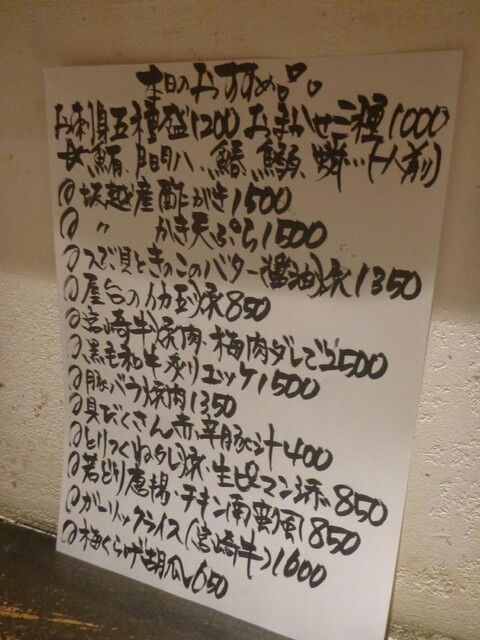 本日のおすすめ品。
お刺身五種盛1200 おまかせ三種1000
鮪、門八、鰆、鰯、(一人前)
@坂越産酢がき1500
@ 〃 かき天ぷら1500
@つぶ貝ときのこのバター醤油炒1350
@屋台の豚玉焼850
@宮崎牛焼肉・梅肉ダレで2500
@黒毛和牛炙りユッケ1500
@豚バラ焼肉1350
@具だくさん赤辛豚汁400
@とりつくねタレ焼・生ピーマン添850
@若どり唐揚・チキン南蛮風850
@ガーリックライス(宮崎牛)1600
@梅くらげ胡瓜650